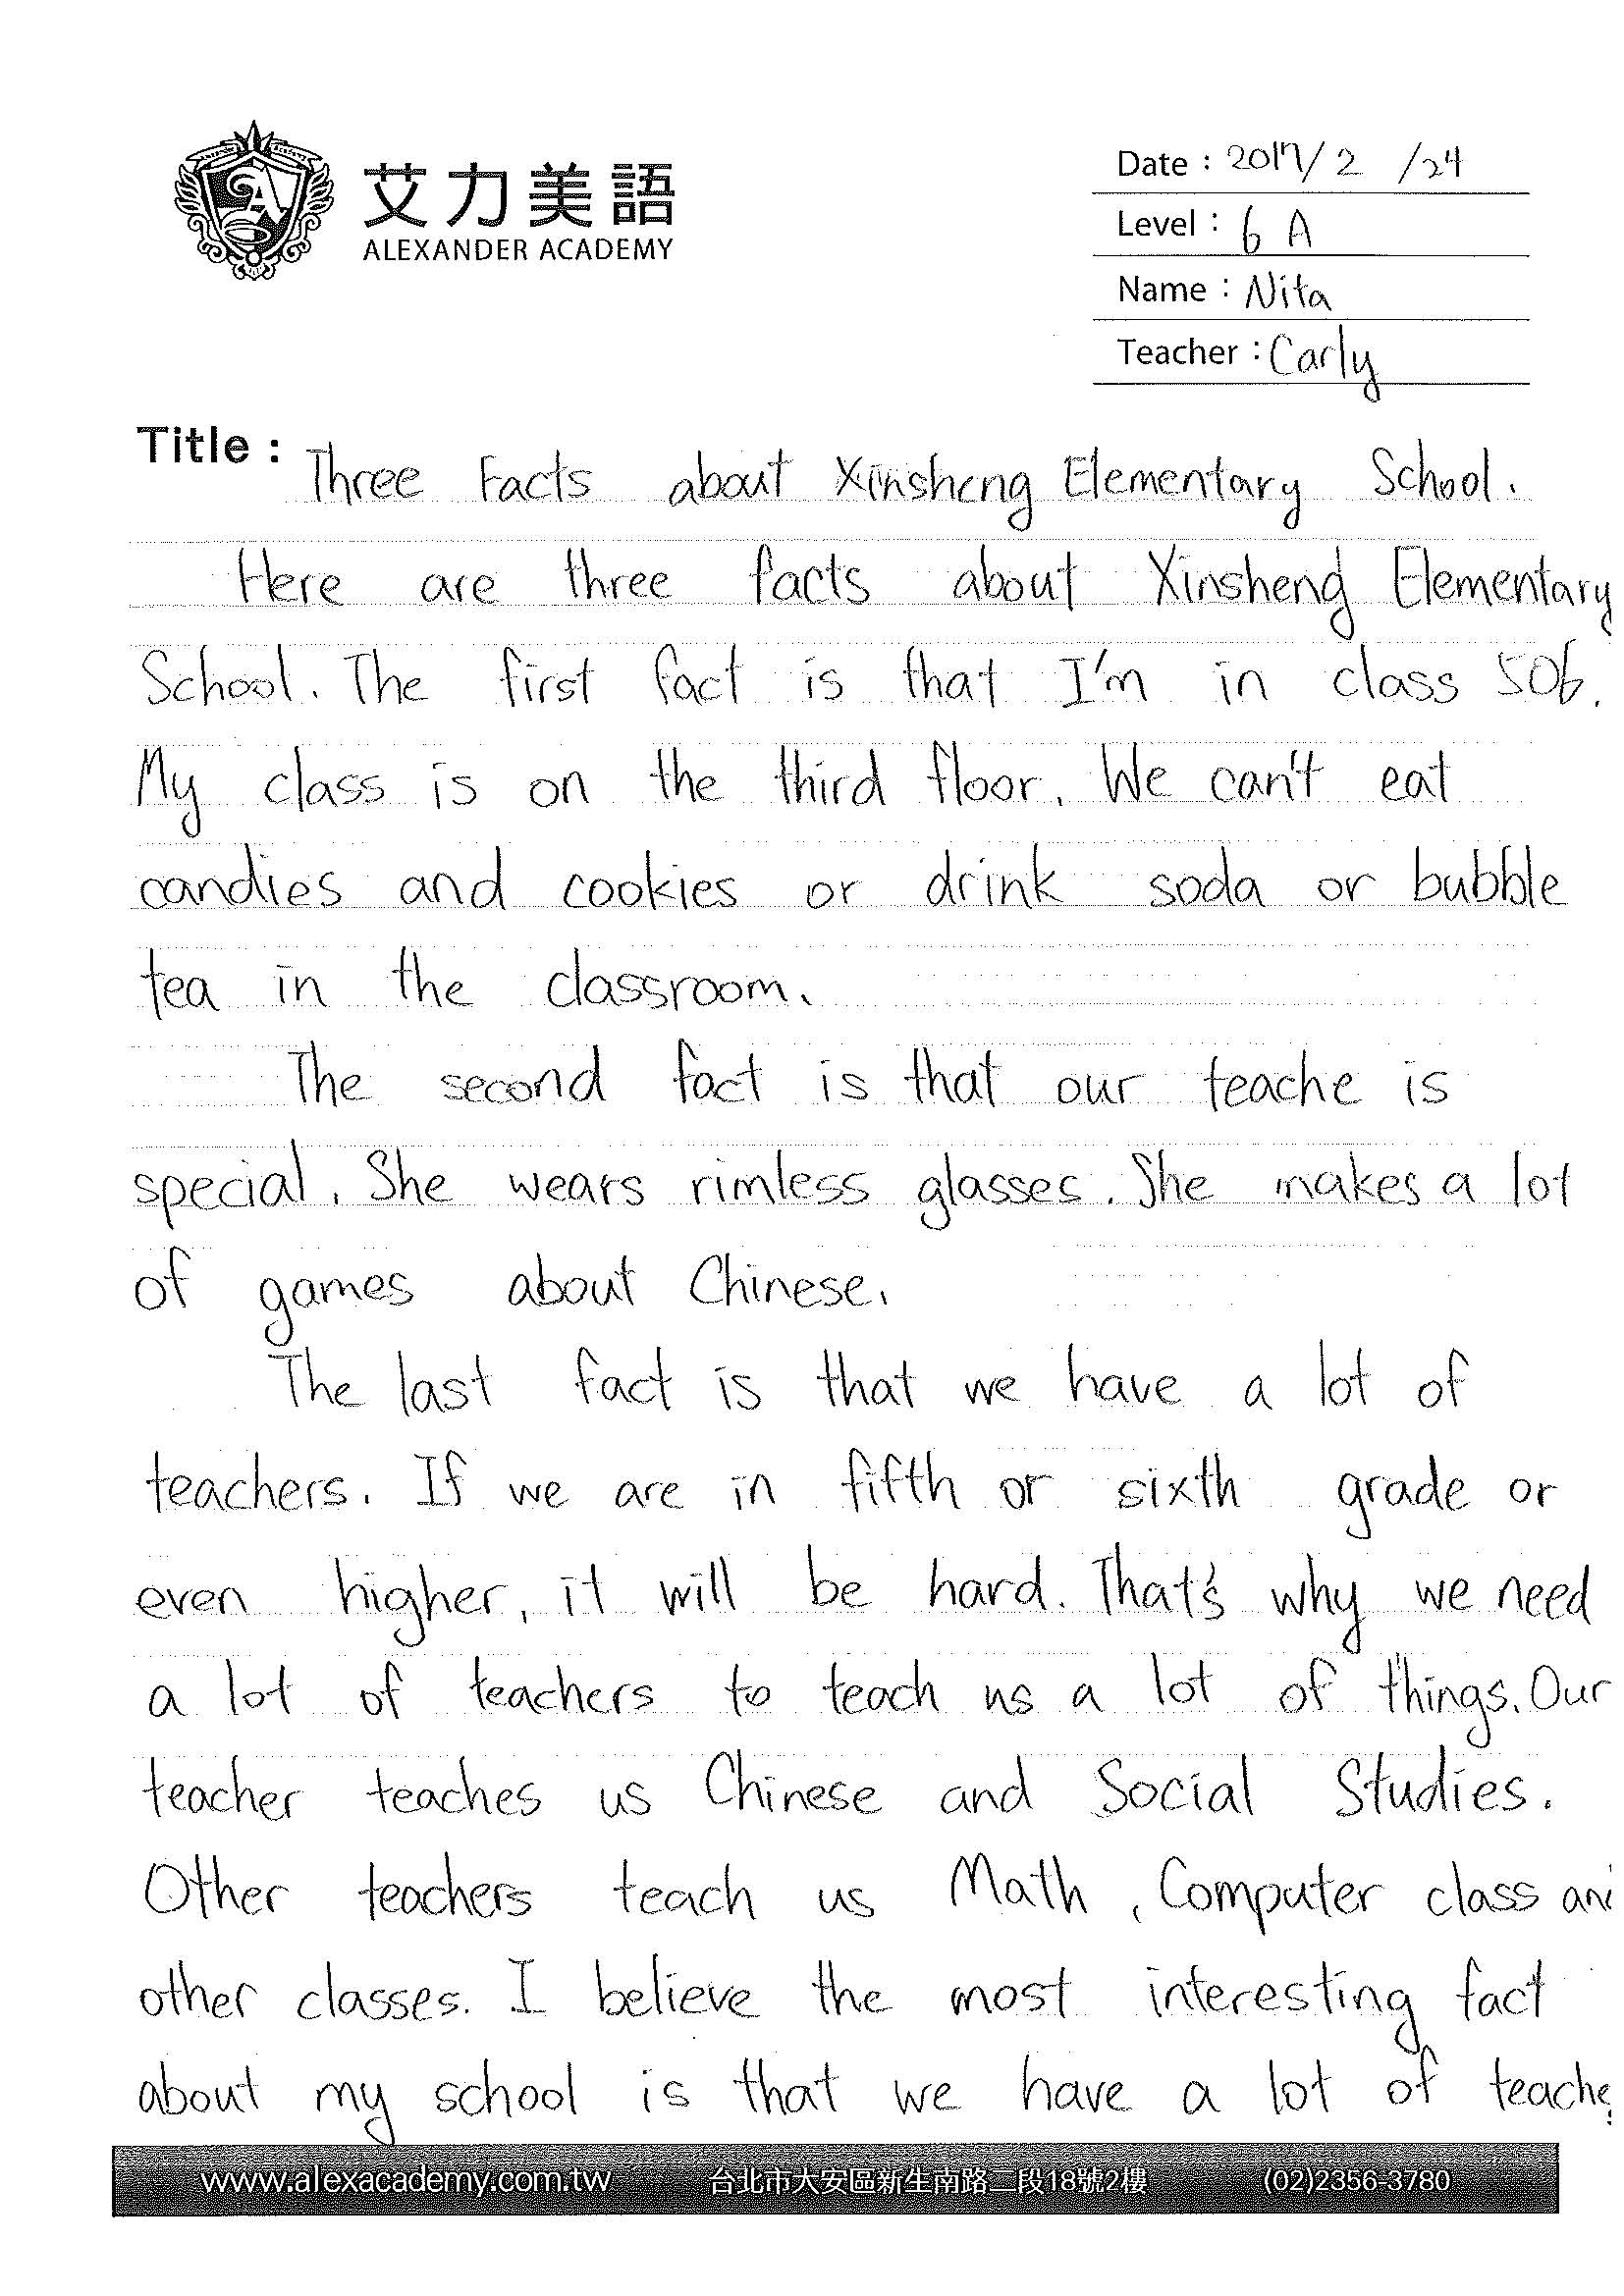 艾力美語
ALEXANDER ACADEMY
Date：2017/2 /24
Level：6 A
Name：Nita
Teacher：Carly
Title：Three Facts about Xinsheng Elementary School.
Here are three facts about Xinsheng Elementary
School. The first fact is that I'm in class 506.
My class is on the third floor. We can't eat
candies and cookies or drink soda or bubble
tea in the classroom.
The second fact is that our teache is
special. She wears rimless glasses. She makes a lot
of games about Chinese.
The last fact is that we have a lot of
teachers. If we are in fifth or sixth grade or
even higher, it will be hard. That's why we need
a lot of teachers to teach us a lot of things. Our
teacher teaches us Chinese and Social Studies.
Other teachers teach us Math, Computer class an
other classes. I believe the most interesting fact
about my school is that we have a lot of teache
www.alexacademy.com.tw 台北市大安區新生南路二段18號2樓 (02)2356-3780